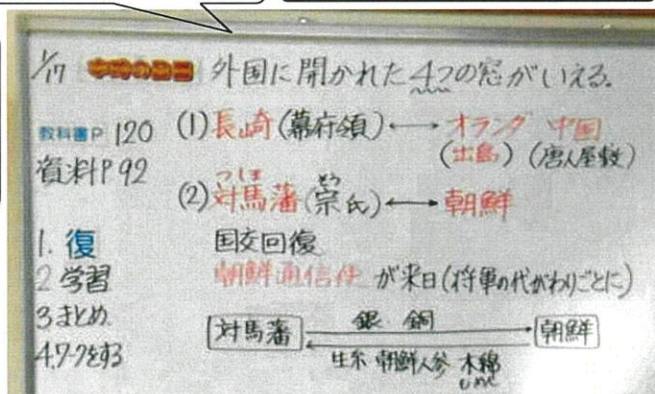 1/17 本時の目標 外国に開かれた4つの窓がいえる。
教科書P 120
資料P92
1. 復
2 学習
3 まとめ
4.ワークをする
(1)長崎(幕府領)←→オランダ 中国
(出島) (唐人屋敷)
つしま そう
(2)対馬藩(宗氏)←→朝鮮
国交回復
朝鮮通信使 が来日(将軍の代がわりごとに)
対馬藩 銀 銅 朝鮮
生糸 朝鮮人参 木綿
もめん